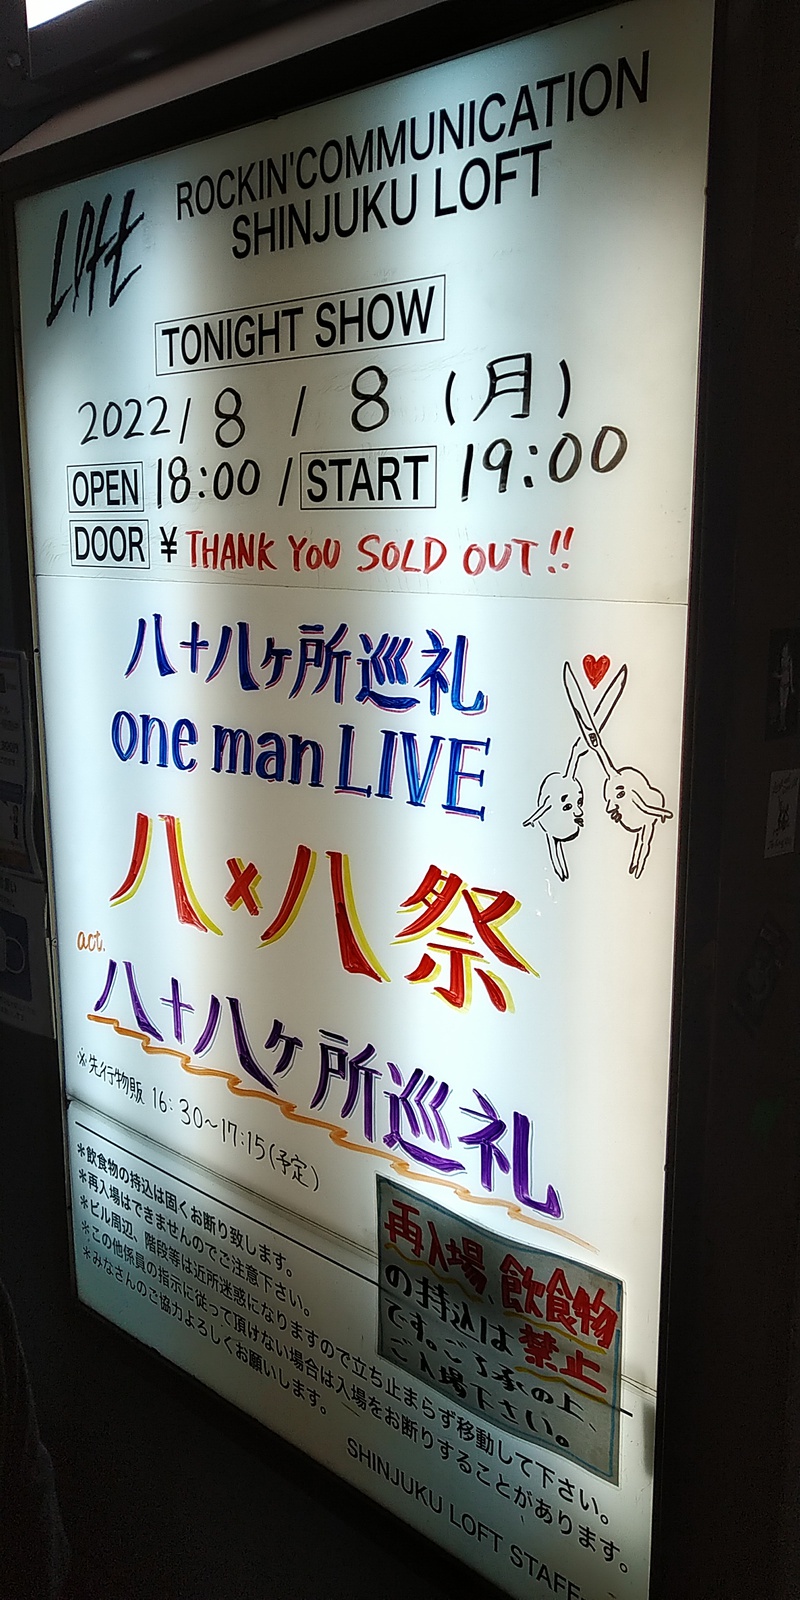 Loft
ROCKIN'COMMUNICATION
SHINJUKU LOFT
TONIGHT SHOW
2022/8/8(月)
OPEN 18:00/START 19:00
DOOR ¥THANK YOU SOLD OUT!!
八十八ヶ所巡礼
one man LIVE
八×八祭
act.
八十八ヶ所巡礼
※先行物販 16:30〜17:15(予定)
＊飲食物の持込は固くお断り致します。
＊再入場はできませんのでご注意下さい。
＊ビル周辺、階段等は近所迷惑になりますので立ち止まらず移動して下さい。
＊この他係員の指示に従って頂けない場合は入場をお断りすることがあります。
＊みなさんのご協力よろしくお願いします。
SHINJUKU LOFT STAFF
再入場、飲食物
の持込は禁止
です。ご了承の上、
ご入場下さい。